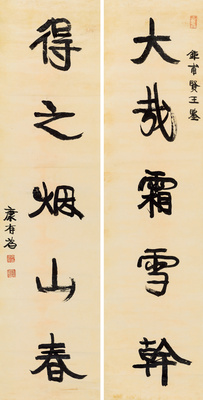 賢王
大哉霜雪幹
得之烟山春
康有為